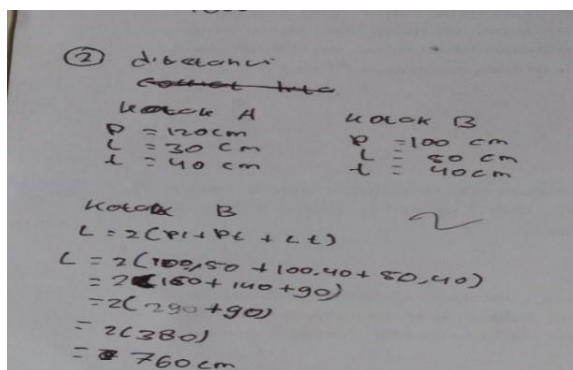 ② diketahui
Kotak A
P = 120 cm
L = 30 cm
t = 40 cm
Kotak B
P = 100 cm
L = 50 cm
t = 40 cm
Kotak B
L = 2(Pl + Pt + Lt)
L = 2(100.50 + 100.40 + 50.40)
= 2(150 + 140 + 90)
= 2(290 + 90)
= 2(380)
= 760 cm